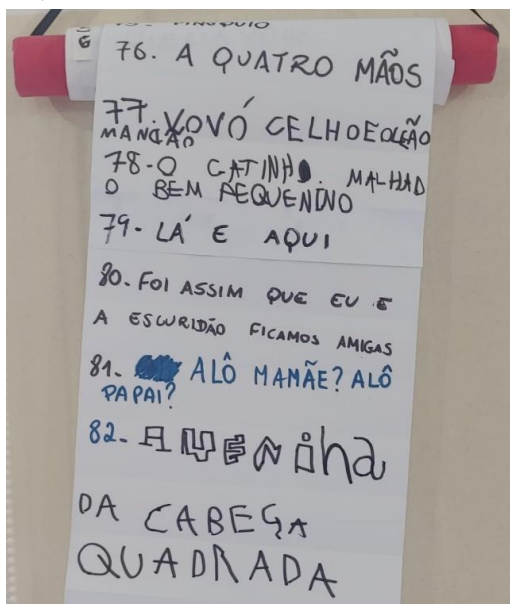 PINÓQUIO
76. A QUATRO MÃOS
77. VOVÓ CELHOE O LEÃO
MANDÃO
78-O GATINHO MALHAD
O BEM PEQUENINO
79- LÁ E AQUI
80. FOI ASSIM QUE EU E
A ESCURIDÃO FICAMOS AMIGAS
81- ALÔ MAMÃE? ALÔ
PAPAI?
82- A VENinha
DA CABEÇA
QUADRADA